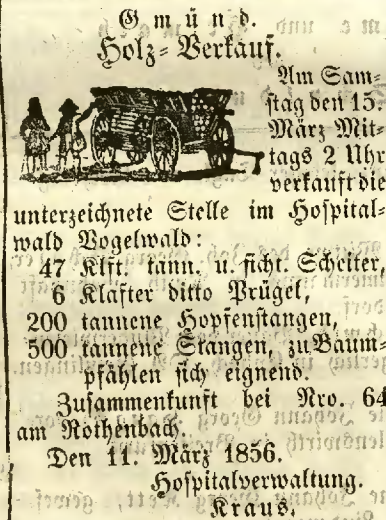 Gmünd.
Holz=Verkauf.
Am Sam=
stag den 15.
März Mit=
tags 2 Uhr
verkauft die
unterzeichnete Stelle im Hospital=
wald Vogelwald:
47 Klft. tann. u. ficht. Scheiter,
6 Klafter ditto Prügel,
200 tannene Hopfenstangen,
500 tannene Stangen, zu Baum=
pfählen sich eignend.
Zusammenkunft bei Nro. 64
am Rothenbach.
Den 11. März 1856.
Hospitalverwaltung.
Kraus.